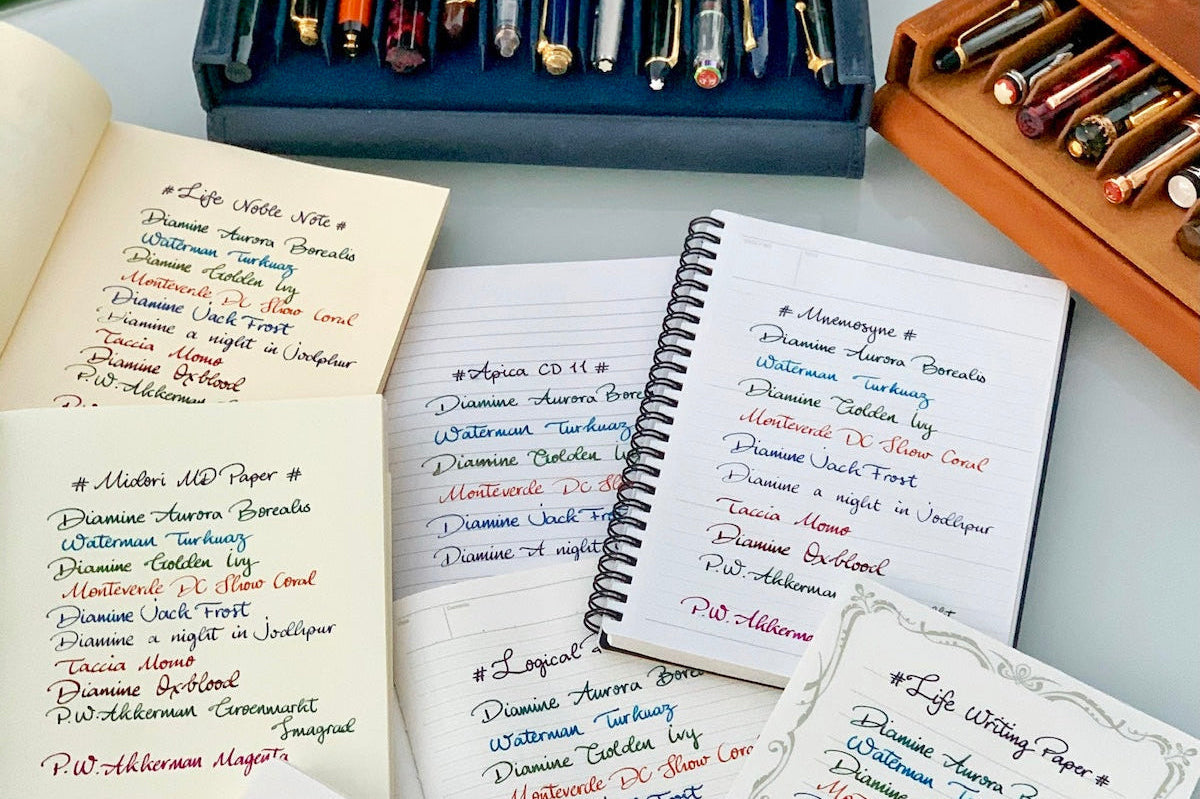 # Life Noble Note #
Diamine Aurora Borealis
Waterman Turkuaz
Diamine Golden Ivy
Monteverde DC Show Coral
Diamine Jack Frost
Diamine a night in Jodhpur
Taccia Momo
Diamine Oxblood
P.W. Akkerman
# Midori MD Paper #
Diamine Aurora Borealis
Waterman Turkuaz
Diamine Golden Ivy
Monteverde DC Show Coral
Diamine Jack Frost
Diamine a night in Jodhpur
Taccia Momo
Diamine Oxblood
P.W. Akkerman Groenmarkt
Smagrad
P.W. Akkerman Magenta
# Apica CD 11 #
Diamine Aurora Bore
Waterman Turkuaz
Diamine Golden
Monteverde DC
Diamine Jack
Diamine A night
# Mnemosyne #
Diamine Aurora Borealis
Waterman Turkuaz
Diamine Golden Ivy
Monteverde DC Show Coral
Diamine Jack Frost
Diamine a night in Jodhpur
Taccia Momo
Diamine Oxblood
P.W. Akkerman
P.W. Akkerma
# Logical
Diamine Aurora Bore
Waterman Turkuaz
Diamine Golden Ivy
Monteverde DC Show Cora
# Life Writing Paper #
Diamine Aurora B
Waterman
Diamine